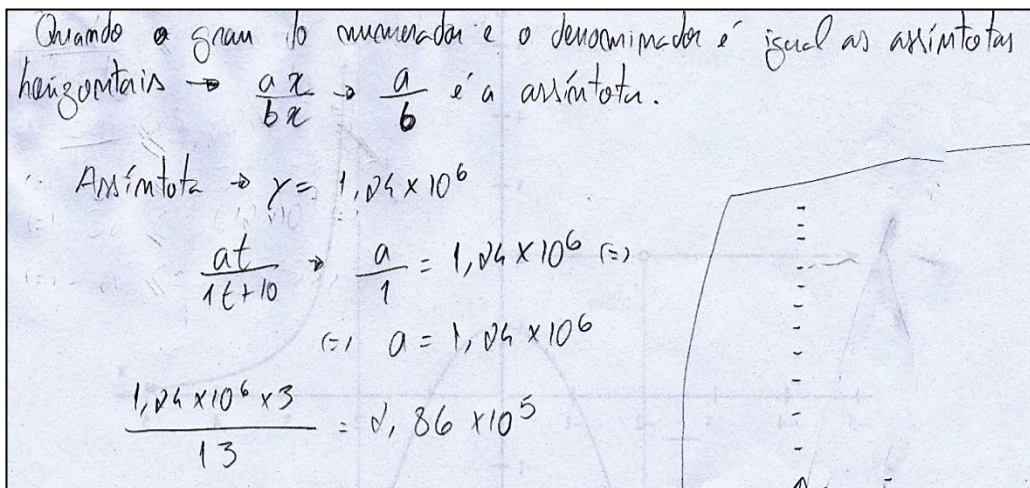 Quando o grau do numerador e o denominador é igual as assíntotas
horizontais → ax/bx → a/b é a assíntota.
Assíntota → y = 1,24 × 10⁶
at/1t+10 → a/1 = 1,24 × 10⁶ (=)
(=) a = 1,24 × 10⁶
1,24 × 10⁶ × 3/13 = 2,86 × 10⁵